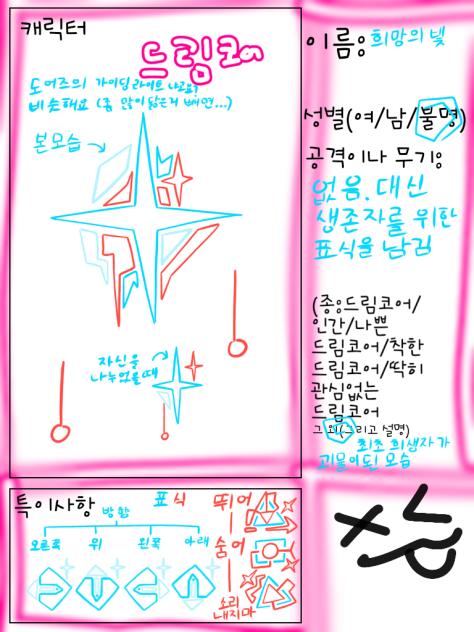 캐릭터
드림코어
도어즈의 가이딩 라이트 냐고요?
비슷해요 (좀 많이 닮은거 빼면...)
본모습
자신을
나누었을때
이름: 희망의 빛
성별(여/남/불명)
공격이나 무기:
없음. 대신
생존자를 위한
표식을 남김
(종:드림코어/
인간/나쁜
드림코어/착한
드림코어/딱히
관심없는
드림코어
그 외(그리고 설명)
최초 희생자가
괴물이된 모습
특이사항
방향
표식
오른쪽 위 왼쪽 아래
뛰어
숨어
소리
내지마